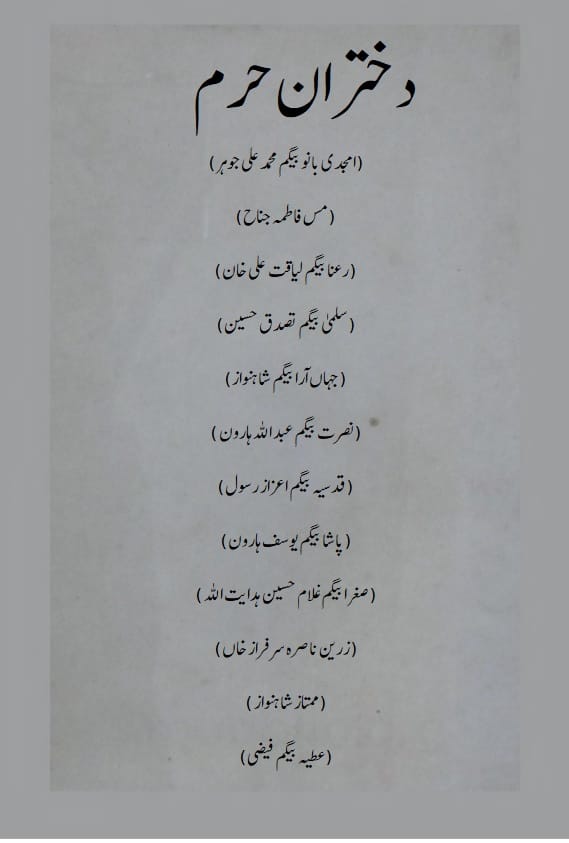 دختران حرم
(امجدی بانو بیگم محمد علی جوہر)
(مس فاطمہ جناح)
(رعنا بیگم لیاقت علی خان)
(سلمیٰ بیگم تصدق حسین)
(جہاں آرا بیگم شاہنواز)
(نصرت بیگم عبداللہ ہارون)
(قدسیہ بیگم اعزاز رسول)
(پاشا بیگم یوسف ہارون)
(صغرا بیگم غلام حسین ہدایت اللہ)
(زرین ناصرہ سرفراز خاں)
(ممتاز شاہنواز)
(عطیہ بیگم فیضی)